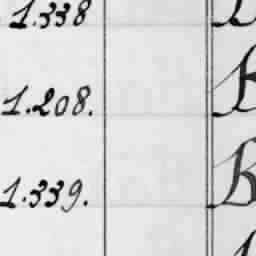 1.338
1.208. B
1.339. B